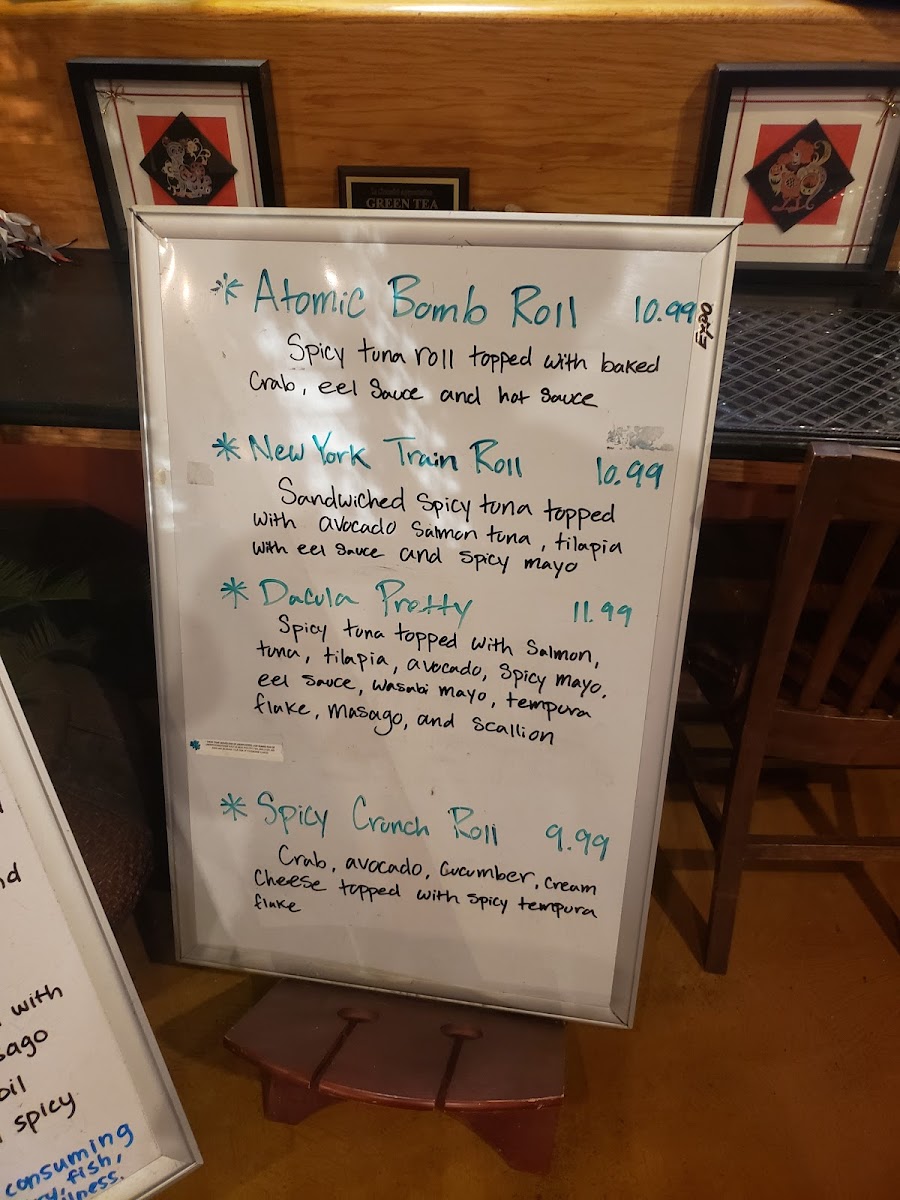 GREEN TEA
* Atomic Bomb Roll 10.99
Spicy tuna roll topped with baked
Crab, eel Sauce and hot sauce
* New York Train Roll 10.99
Sandwiched spicy tuna topped
with avocado Salmon tuna, tilapia
with eel sauce and spicy mayo
* Dacula Pretty 11.99
Spicy tuna topped with Salmon,
tuna, tilapia, avocado, Spicy mayo,
eel sauce, wasabi mayo, tempura
flake, masago, and scallion
* Spicy Crunch Roll 9.99
Crab, avocado, Cucumber, Cream
Cheese topped with spicy tempura
flake
with
oil
spicy
consuming
fish,